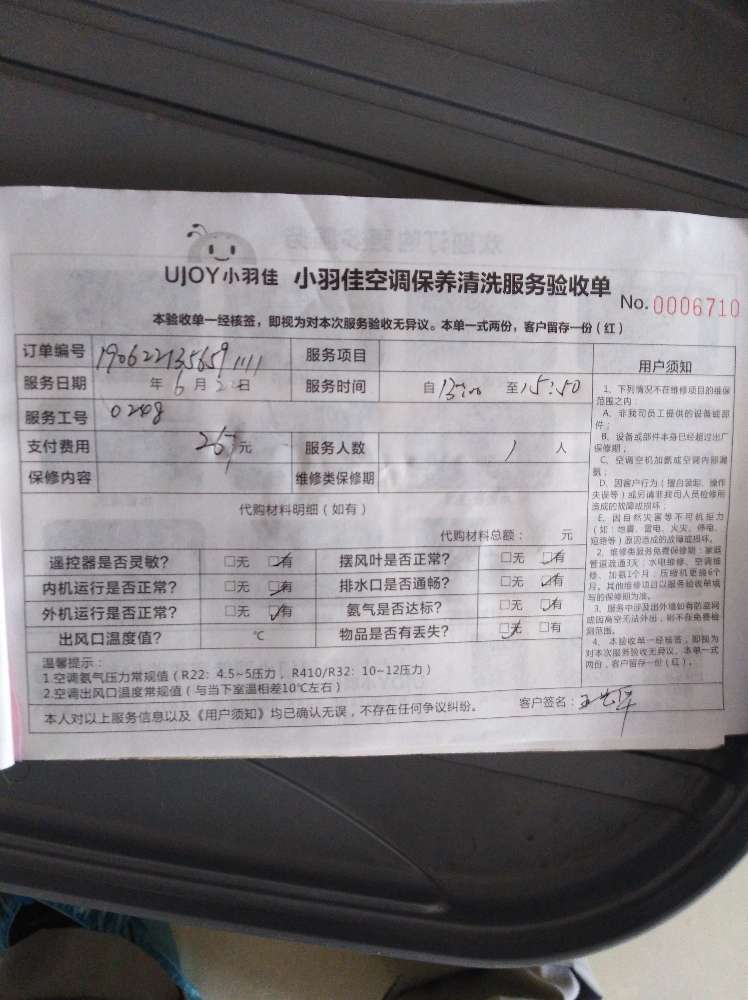 UJOY小羽佳 小羽佳空调保养清洗服务验收单
No. 0006710
本验收单一经核签，即视为对本次服务验收无异议。本单一式两份，客户留存一份（红）
订单编号 190622135659 1111 服务项目
服务日期 年 6 月 22 日 服务时间 自 13:00 至 15:50
服务工号 0208
支付费用 元 服务人数 1 人
保修内容 维修类保修期
代购材料明细（如有）
代购材料总额： 元
遥控器是否灵敏? □无 ☑有 摆风叶是否正常? □无 ☑有
内机运行是否正常? □无 ☑有 排水口是否通畅? □无 ☑有
外机运行是否正常? □无 ☑有 氨气是否达标? □无 ☑有
出风口温度值? ℃ 物品是否有丢失? ☑无 □有
温馨提示：
1.空调氨气压力常规值（R22：4.5~5压力，R410/R32：10~12压力）
2.空调出风口温度常规值（与当下室温相差10℃左右）
本人对以上服务信息以及《用户须知》均已确认无误，不存在任何争议纠纷。 客户签名：
用户须知
1、下列情况不在维修项目的维保
范围之内：
A、非我司员工提供的设备或部
件；
B、设备或部件本身已经超过出厂
保修期；
C、空调空机加氨或空调内部漏
氨；
D、因客户行为（擅自装卸、操作
失误等）或另请非我司人员检修所
造成的故障或损坏；
E、因自然灾害等不可抗拒力
（如：地震、雷电、火灾、停电、
短路等）原因造成的故障或损坏。
2、维修类服务免费保修期：家庭
管道疏通3天；水电维修、空调维
修、加氨1个月；压缩机更换6个
月。其他维修项目以服务验收单填
写的保修期为准。
3、服务中涉及出外墙如有防盗网
或因高空无法外出，则不在免费检
测范围。
4、本验收单一经核签，即视为
对本次服务验收无异议。本单一式
两份，客户留存一份（红）。